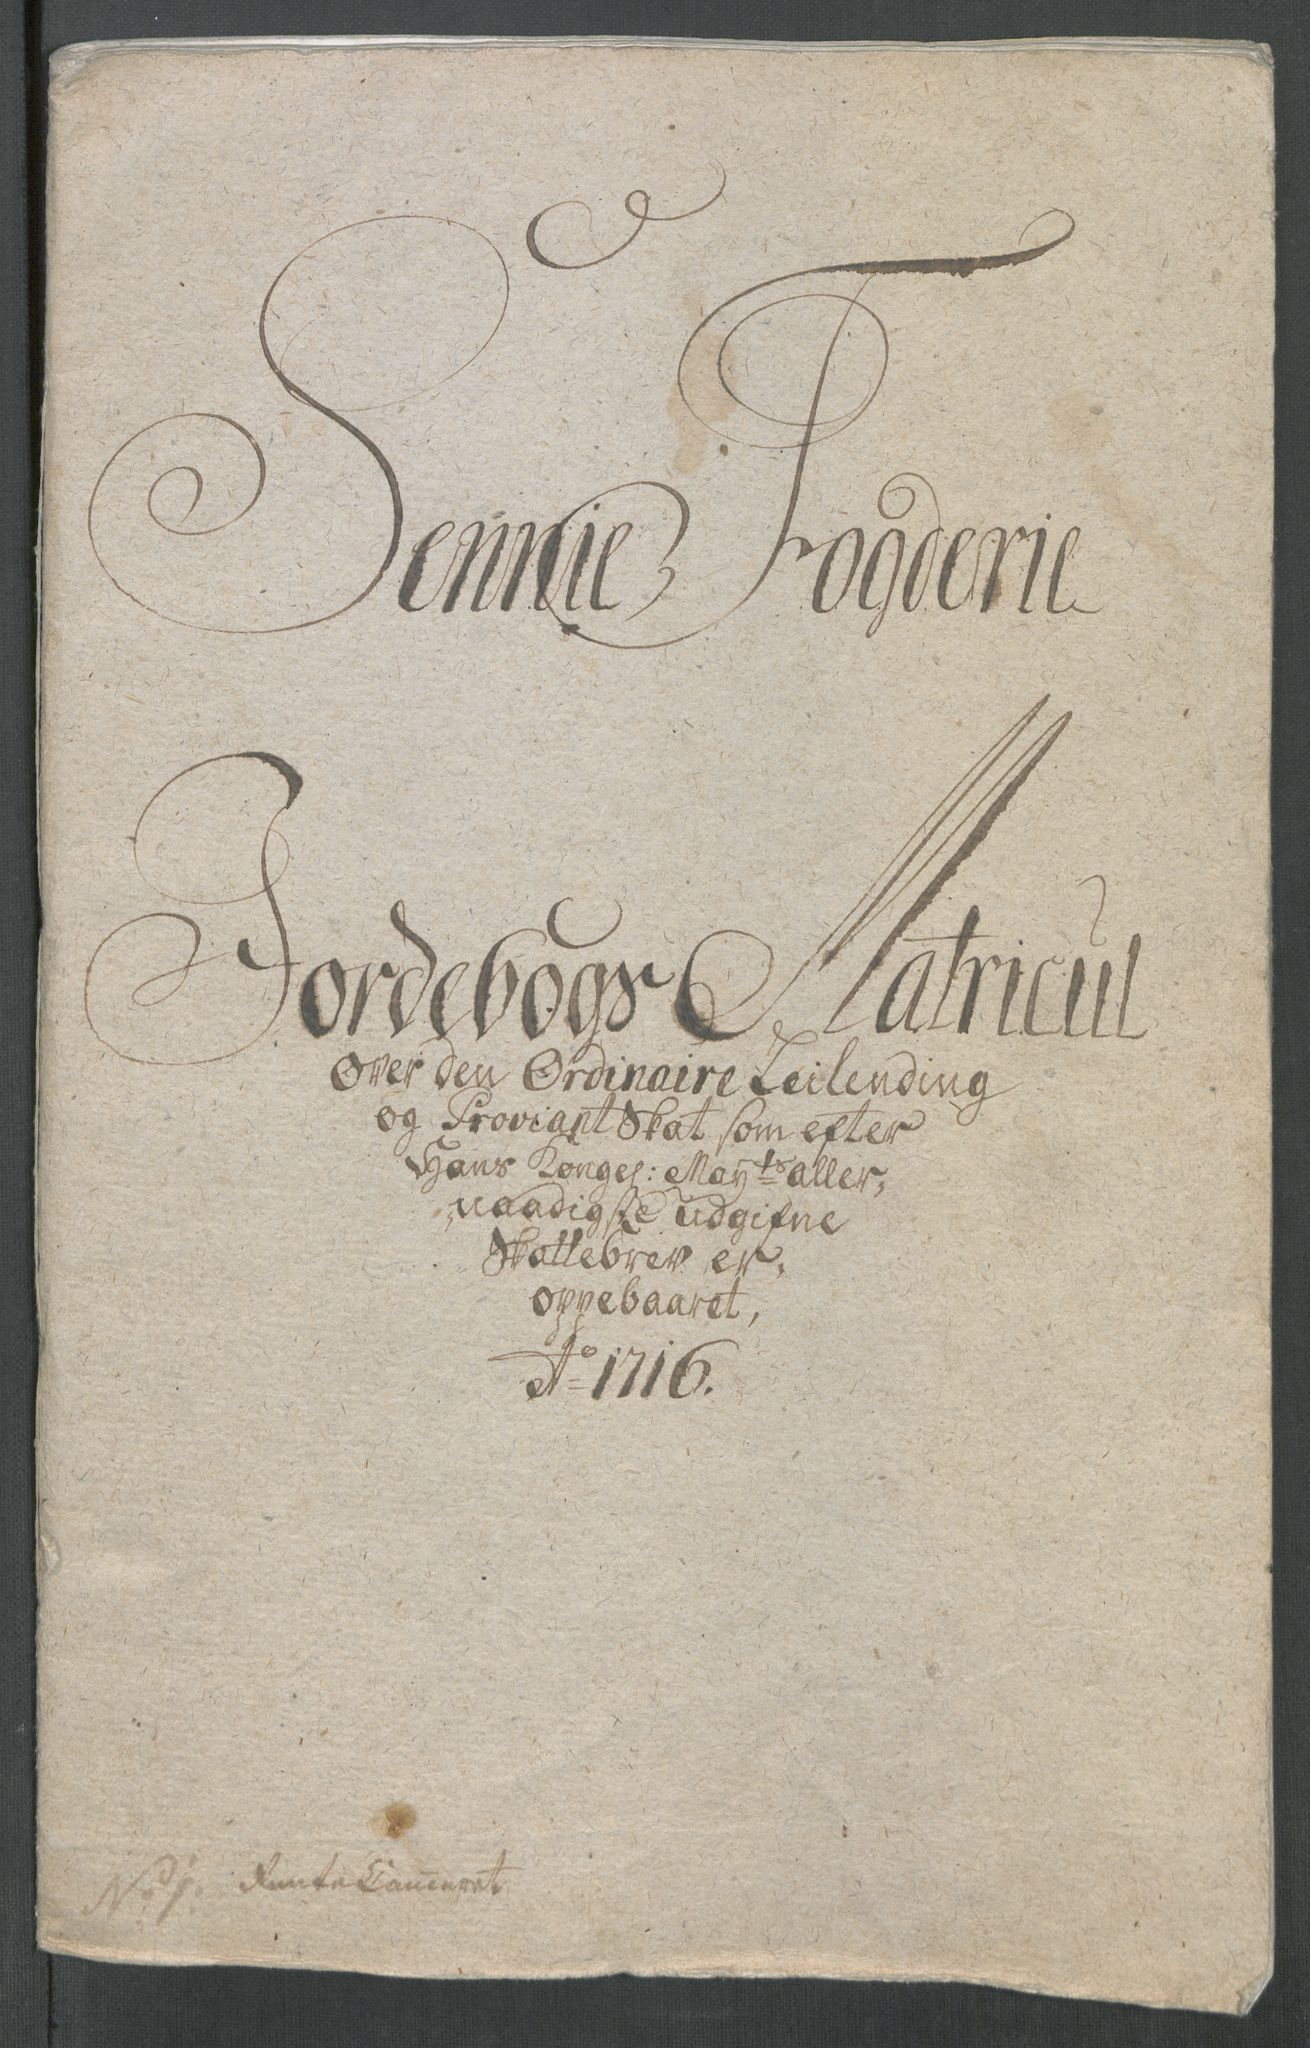 Sennie Fogderie
Jordebogs Matricul
Over den Ordinaire Leilending
og Proviant Skat som efter
Hans Konges: Mayts aller,
naadigste udgifne
Skattebrev er,
oppebaaret,
Ao 1716.
No 1. Rente Cammeret